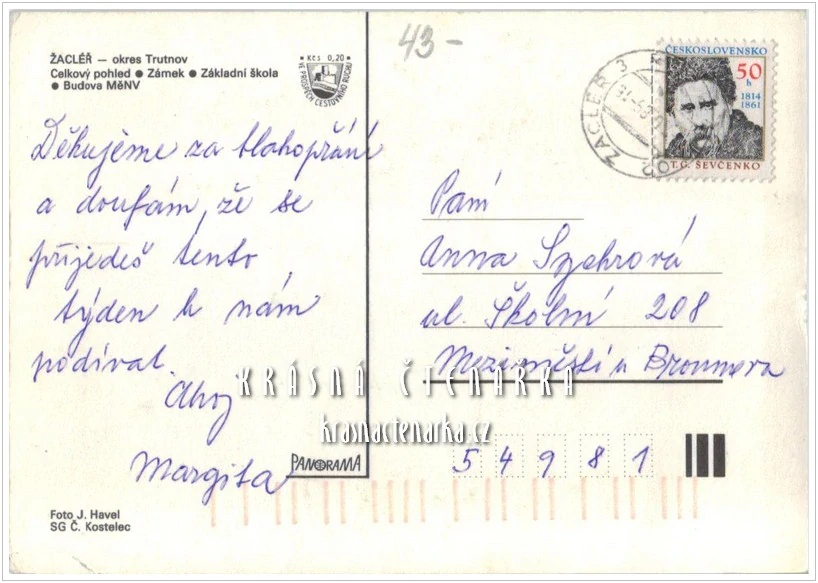 ŽACLÉŘ — okres Trutnov
Celkový pohled ● Zámek ● Základní škola
● Budova MěNV
Kčs 0,20
VE PROSPĚCH CESTOVNÍHO RUCHU
43-
ŽACLÉŘ 3
ČESKOSLOVENSKO
50
h
1814
1861
T.G. ŠEVČENKO
Děkujeme za blahopřání
a doufám, že se
přijedeš tento
týden k nám
podívat.
Ahoj
Margita
Paní
Anna Szehrová
ul. Školní 208
Meziměstí u Broumova
KRÁSNÁ ČTENÁRKA
krasnactenarka.cz
PANORAMA
54981
Foto J. Havel
SG Č. Kostelec